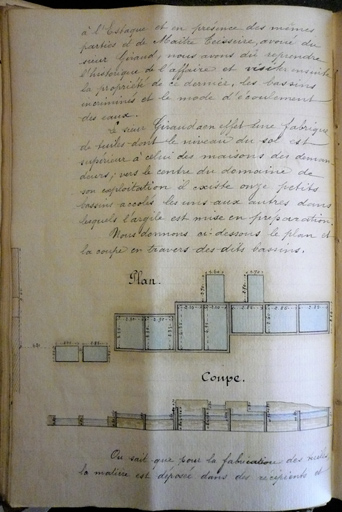 à l'Estaque et en présence des mêmes
parties et de Maître Teisseire, avoué du
sieur Giraud, nous avons dû reprendre
l'historique de l'affaire et visiter
la propriété de ce dernier, les bassins
incriminés et le mode d'écoulement
des eaux.
Le sieur Giraud a en effet une fabrique
de tuiles dont le niveau du sol est
supérieur à celui des maisons des deman
deurs; vers le centre du domaine de
son exploitation il existe onze petits
bassins accolés les uns aux autres dans
lesquels l'argile est mise en préparation.
Nous donnons ci-dessous le plan et
la coupe en travers des dits bassins.
Plan.
Coupe.
On sait que pour la fabrication des
la matière est déposée dans des récipients